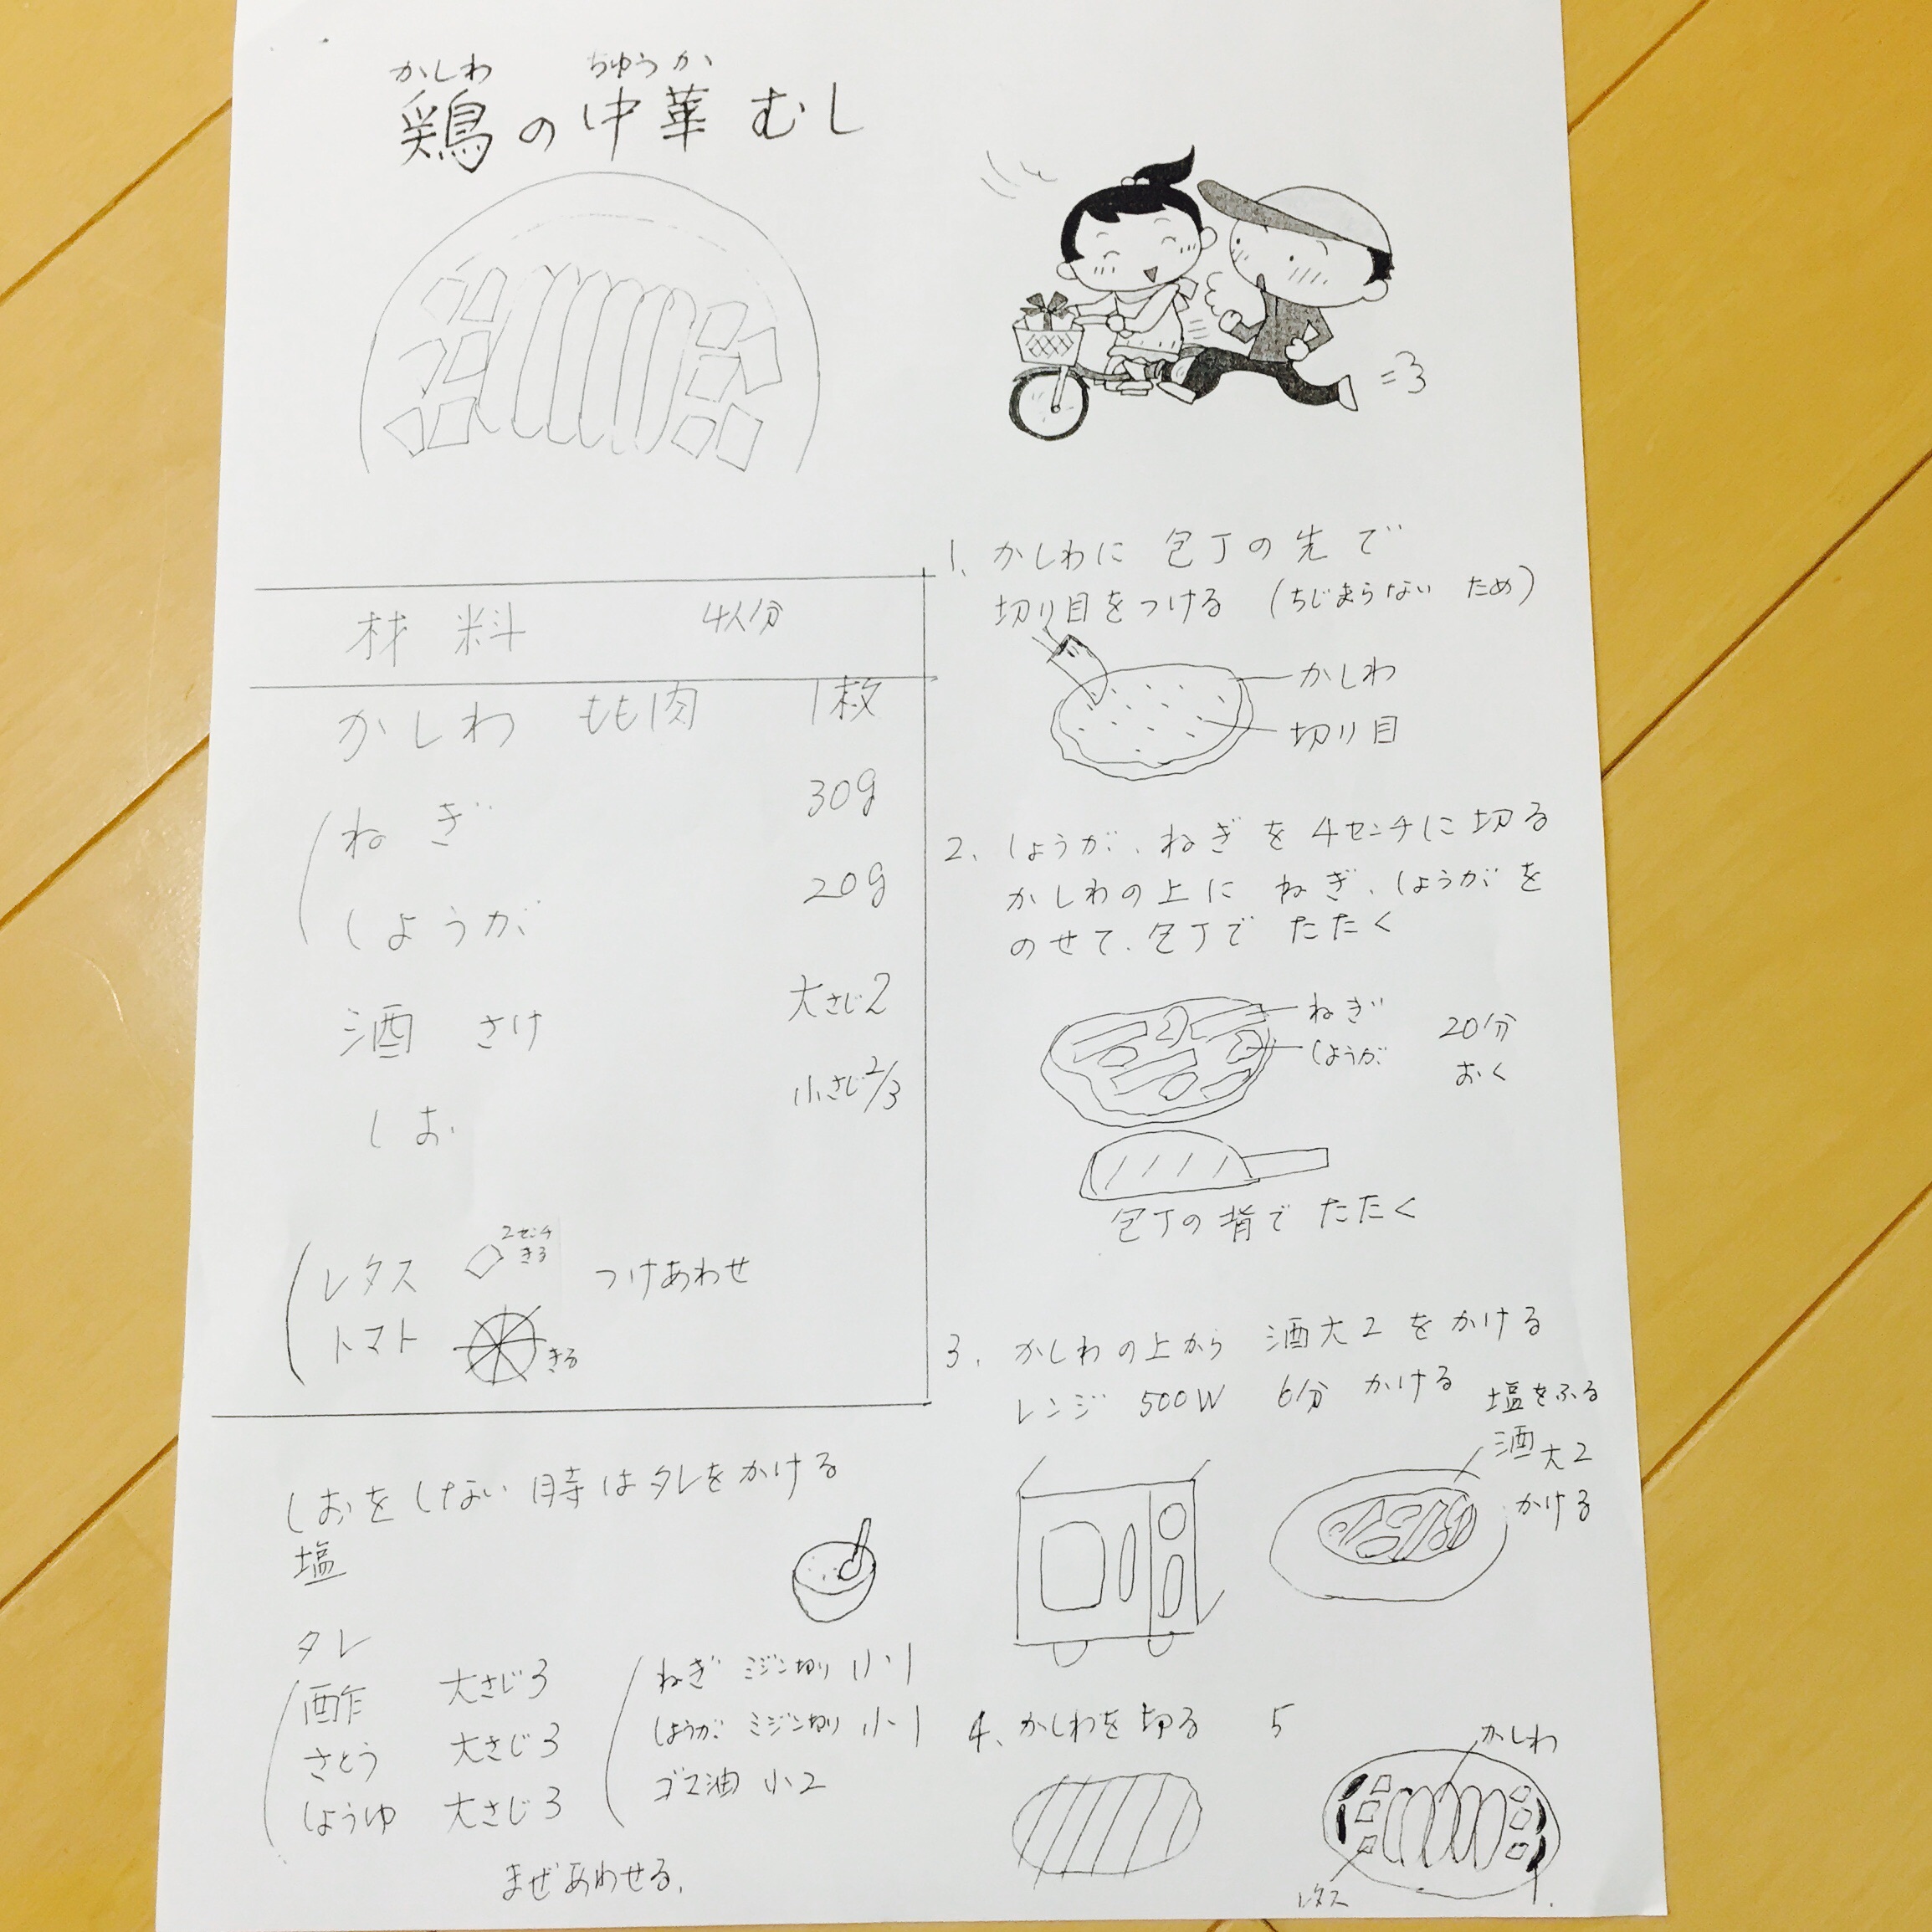 かしわ ちゅうか
鶏の中華むし
材料 4人分
かしわ もも肉 1枚
ねぎ 30g
しょうが 20g
酒 さけ 大さじ2
しお 小さじ2/3
レタス 2センチ きる つけあわせ
トマト きる
しおをしない時はタレをかける
塩
タレ
酢 大さじ3
さとう 大さじ3
しょうゆ 大さじ3
ねぎ ミジン切り 小1
しょうが ミジン切り 小1
ゴマ油 小2
まぜあわせる.
1、かしわに 包丁の先で
切り目をつける (ちじまらない ため)
かしわ
切り目
2、しょうが、ねぎを4センチに切る
かしわの上に ねぎ、しょうがを
のせて、包丁で たたく
ねぎ
しょうが
20分
おく
包丁の背で たたく
3、かしわの上から 酒大2をかける
レンジ 500W 6分 かける
塩をふる
酒大2
かける
4、かしわを切る
5
かしわ
レタス